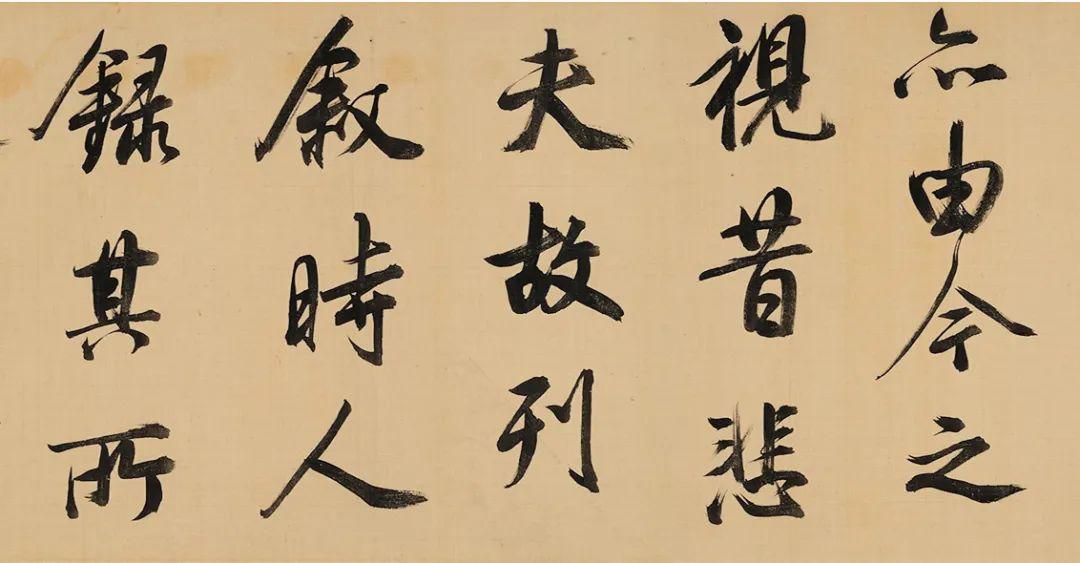 亦由今之
視昔悲
夫故列
叙時人
録其所